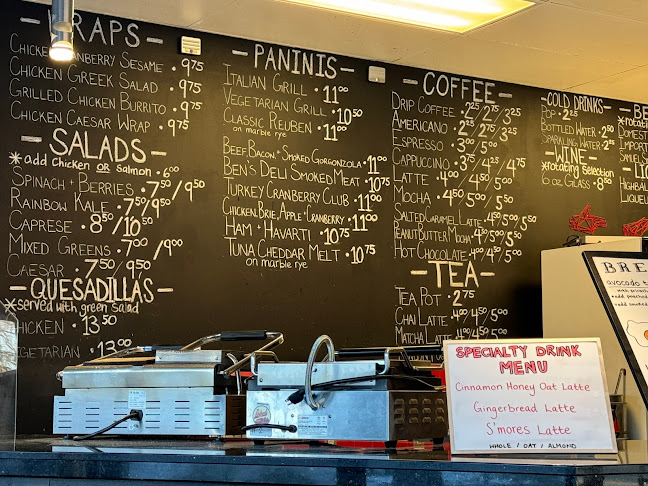 WRAPS
CHICKEN CRANBERRY SESAME . 9.75
CHICKEN GREEK SALAD . 9.75
GRILLED CHICKEN BURRITO . 9.75
CHICKEN CAESAR WRAP . 9.75
- SALADS -
*add chicken OR salmon . 6.00
SPINACH + BERRIES . 7.50/9.50
RAINBOW KALE . 7.50/9.50
CAPRESE . 8.50/10.50
MIXED GREENS . 7.00/9.00
CAESAR . 7.50/9.50
- QUESADILLAS -
*served with green salad
CHICKEN . 13.50
VEGETARIAN . 13.00
- PANINIS -
ITALIAN GRILL . 11.00
VEGETARIAN GRILL . 10.50
CLASSIC REUBEN . 11.00
on marble rye
BEEF BACON + SMOKED GORGONZOLA . 11.00
BEN'S DELI SMOKED MEAT . 10.75
TURKEY CRANBERRY CLUB . 11.00
CHICKEN, BRIE, APPLE + CRANBERRY . 11.00
HAM + HAVARTI . 10.75
TUNA CHEDDAR MELT . 10.75
on marble rye
- COFFEE -
DRIP COFFEE . 2.25/2.75/3.25
AMERICANO
ESPRESSO . 3.00
CAPPUCCINO . 3.75/4.25/4.75
LATTE . 4.00
MOCHA . 4.50/5.00/5.50
SALTED CARAMEL LATTE
PEANUT BUTTER MOCHA
HOT CHOCOLATE
- TEA -
TEA POT . 2.75
CHAI LATTE . 4.00/4.50/5.00
MATCHA LATTE
COLD DRINKS
POP . 2.25
BOTTLED WATER . 2.50
SPARKLING WATER
- WINE -
*rotating selection
6 oz GLASS . 8.00
BE
*rotating
DOMEST
IMPORT
SAMUEL S
HIGHBAL
LIQUEU
BRE
avocado t
SPECIALTY DRINK
MENU
Cinnamon Honey Oat Latte
Gingerbread Latte
S'mores Latte
WHOLE / OAT / ALMOND